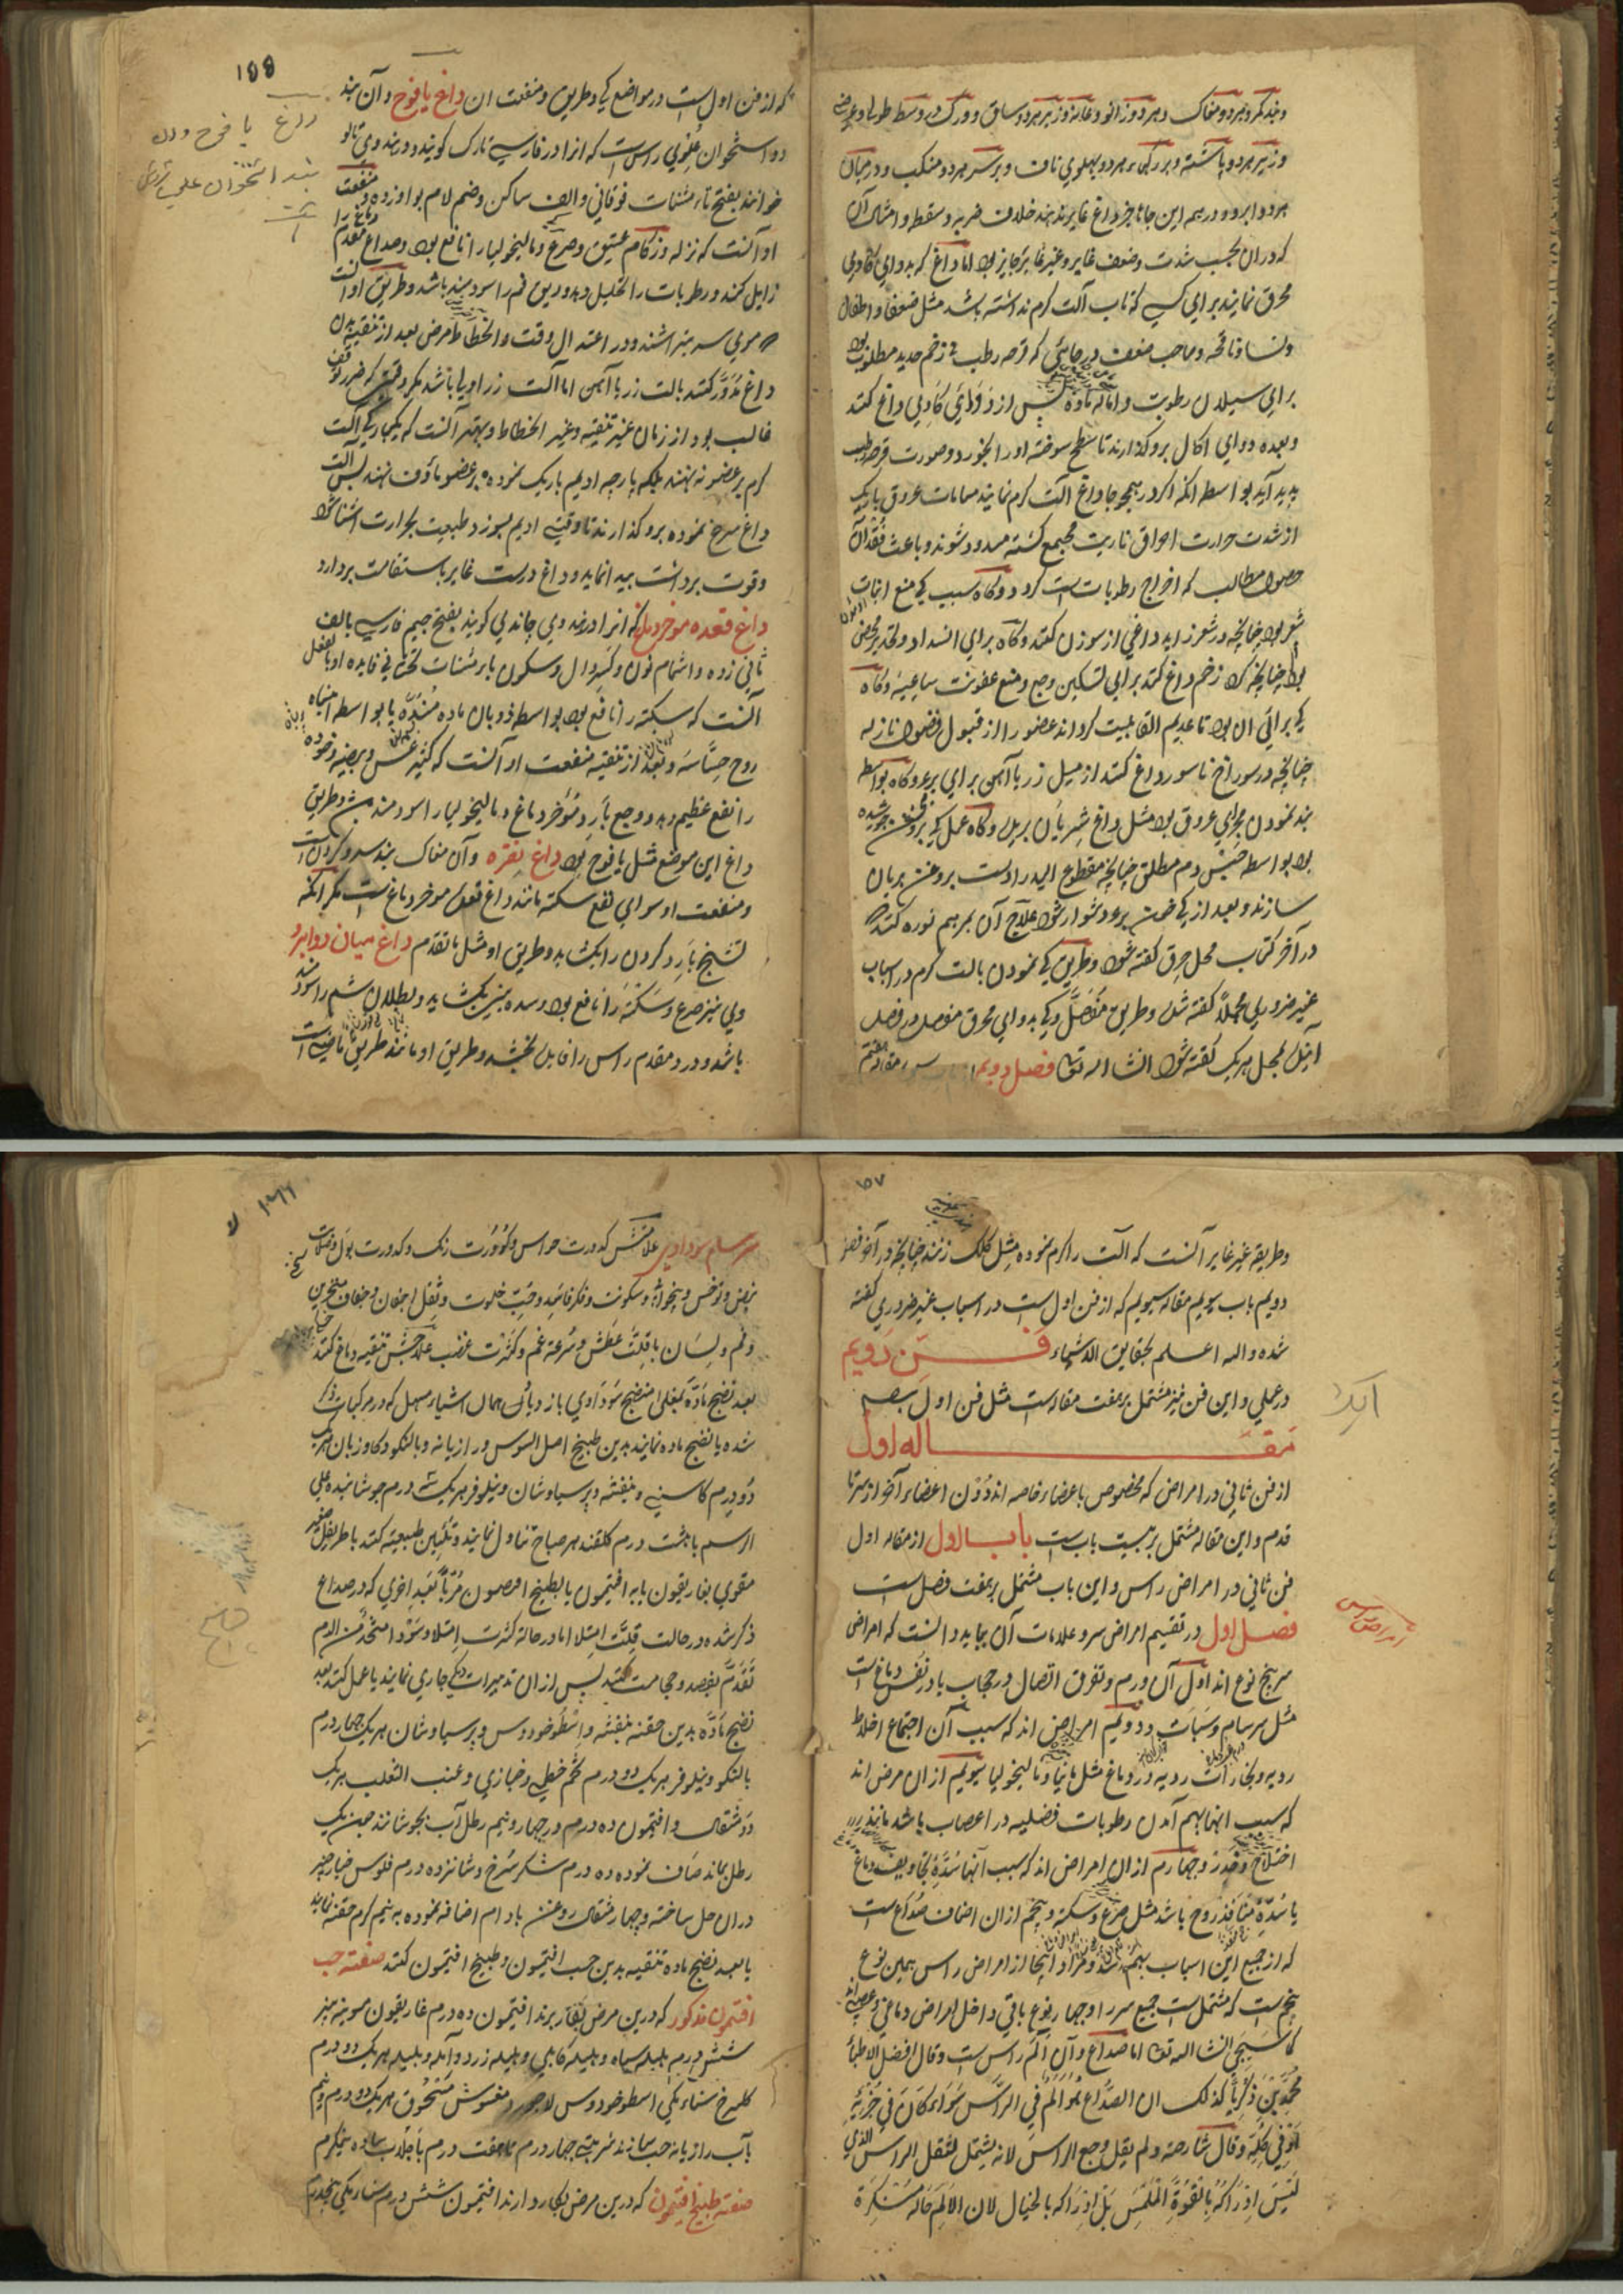 و بند کمر و هر دو مغاک و هر دو زانو و عانه و زیر هر دو ساق و ورک در وسط طولا و عرض
و زیر هر دو پاشنه و بر هر دو پهلوی ناف و بر سر هر دو منکب و در میان
هر دو ابرو و در همه این جاها جز داغ غایر ننهند خلاف ضربه و سقطه و امثال آن
که در آن بحسب شدت و ضعف غایر و غیر غایر جایز بود اما داغ که بدوای کاوی
محرق نمایند برای کسی که تاب آلت گرم نداشته باشد مثل ضعفا و اطفال
و نسا و ناقه و صاحب ضعف در جائی که قرحه رطب و زخم جدید مطلوب بود
برای سیلان رطوبت و اماله ماده پس از دوای کاوی داغ کنند
و بعده دوای اکال برو گذارند تا سطح سوخته او را بخورد و صورت قرحه رطب
پدید آید بواسطه آنکه اگر در همچو جا داغ آلت گرم نمایند مسامات عروق باریک
از شدت حرارت احراق ناریت مجتمع گشته مسدود شوند و باعث فقدان
حصول مطالب که اخراج رطوبات است گردد و گاه سبب کی منع انبات
شعر بود چنانچه در شعر زاید داغی از سوزن کنند و گاه برای انسداد
بود چنانچه که زخم داغ کنند برای تسکین وجع و منع عفونت ساعیه و گاه
کی برای آن بود تا عدیم القابلیت گرداند عضو را از قبول فضول نازله
چنانچه در سوراخ ناسور داغ کنند از میل زر یا آهن برای برء و گاه بواسطه
بند نمودن مجرای عروق بود مثل داغ شریان بریده و گاه عمل کی بروغن جوشیده
بود بواسطه حبس دم مطلق چنانچه مقطوع الید را دست بروغن بریان
سازند و بعد از کی ختن برء دشوار شود علاج آن بمرهم نوره کنند
در آخر کتاب محل حرق گفته شود و طریق کی نمودن بآلت گرم در اسباب
غیر ضروری مجملا گفته شد و طریق مفصل و کی بدوای محرق مفصل در فصل
آینده بمحل هر یک گفته شود انشاء الله تعالی فصل دویم
۱۵۵
که از فن اول است در مواضع کی و طریق و منفعت آن داغ یافوخ و آن بند
دو استخوان علوی راس است که آنرا در فارسی تارک گویند و در هندوی تالو
خوانند بفتح تاء مثنات فوقانی و الف ساکن و ضم لام بواو زده منفعت
او آنست که نزله و زکام عتیق و صرع و مالیخولیا را نافع بود و صداع مقدم دماغ را
زایل کند و رطوبات را تحلیل دهد و ریق فم را سودمند باشد و طریق او آنست
که موی سر بتراشند و در اعتدال وقت و انحطاط مرض بعد از تنقیه بدن
داغ مدور کنند بآلت زر یا آهن اما آلت زر اولی باشد مگر وقتی که ضرر توقف
غالب بود از زمان غیر تنقیه و غیر انحطاط و بهتر آنست که یکبارگی آلت
گرم بر عضو ننهند بلکه پارچه ادیم باریک نموده بر عضو ماوف نهند پس آلت
داغ سرخ نموده برو گذارند تا وقتی ادیم بسوزد و طبیعت بحرارت آشنا شود
و قوت برداشت پیدا نماید و داغ درست غایر باستقامت بردارد
داغ قعده موخر دماغ که آنرا در هندوی چاندلی گویند بفتح جیم فارسی بالف
ثانی زده و اشمام نون و کسر دال و سکون یاء مثنات تحتانی فایده او بالفعل
آنست که سکته را نافع بود بواسطه ذوبان ماده مسدّه یا بواسطه انتباه
روح حساسه و بعد از تنقیه منفعت او آنست که کثیر عطس و بیضه و خوده
را نفع عظیم دهد و وجع بارد موخر دماغ و مالیخولیا را سودمند بود و طریق
داغ این موضع مثل یافوخ بود داغ نقره و آن مغاک بند سر و گردن است
و منفعت او سوای نفع سکته مانند داغ قعده موخر دماغ است مگر آنکه
تشنج بارد گردن را بگشاید و طریق او مثل ما تقدم داغ میان دو ابرو
وی نیز صرع و سکته را نافع بود و سده نیز بگشاید و بطلان شم را سودمند
باشد و درد مقدم راس را فایده بخشد و طریق او مانند طریق ماضیه است
داغ یافوخ و آن
بند استخوان علی
است
۱۵۷
و طریقه غیر غایر آنست که آلت را گرم نموده مثل کلک زنند چنانچه در آخر فصل
دویم باب سیویم مقاله سیویم که از فن اول است در اسباب غیر ضروری گفته
شده والله اعلم بحقایق الاشیاء فن دویم
در عملی و این فن نیز مشتمل بر هفت مقاله است مثل فن اول بصیر
مقاله اول
از فن ثانی در امراض که مخصوص باعضاء خاصه اند دون اعضاء آخر از سر تا
قدم و این مقاله مشتمل بر بیست باب است باب اول از مقاله اول
فن ثانی در امراض راس و این باب مشتمل بر هفت فصل است
فصل اول در تقسیم امراض سر و علامات آن بباید دانست که امراض
سر پنج نوع اند اول آن ورم و تفرق اتصال در حجاب یا در نفس دماغ است
مثل سرسام و سبات و دویم امراض اند که سبب آن اجتماع اخلاط
ردیه و بخارات ردیه در دماغ مثل مانیا و مالیخولیا سیویم از آن مرض اند
که سبب آنها بهم آمدن رطوبات فضلیه در اعصاب باشد مانند
اختلاج و خدر و چهارم از آن امراض اند که سبب آنها سدّه تجاویف دماغ
یا سدّه منافذ روح باشد مثل صرع و سکته و پنجم از آن اصناف صداع است
که از جمیع این اسباب بهم رسد و مراد اینجا از امراض راس همین نوع
پنجم است که مشتمل است جمیع سر را و چهار نوع باقی داخل امراض دماغی
کما سیجی انشاء الله تعالی اما صداع و آن الم راس است و قال افضل الاطبا
محمد بن زکریا کذلک ان الصداع هو الم فی الراس سواء کان فی جزئه
او فی کله و قال شارحه ولم یقل وجع الراس لانه یشتمل لثقل الراس الذی
لیس ادراکه بالقوة اللمس بل ادراکه بالخیال لان الالم حالة مستنکرة
امراض سر
سرسام سوداوی علامتش کدورت حواس و کمودت رنگ و کدورت بول و صلابت
نبض و توحش و بیخوابی و سکوت و فکر فاسد و حب خلوت و ثقل اجفان و جفاف منخرین
و فم و لسان با قلت عطش و سرعة غم و کثرت غضب علاجش تنقیه دماغ کنند
بعد نضج ماده بمغلی منضج سوداوی باز دیاد آن همان اشیاء مسهل که در مرکبات ذکر
شده یا نضج ماده نمایند بدین طبیخ اصل السوس و رازیانه و بالنکو و گاوزبان هر یک
دو درم کاسنی و بنفشه و پرسیاوشان و نیلوفر هر یک سه درم جوشانیده علی
الرسم با هشت درم گلقند هر صباح تناول نمایند و تلیین طبیعت کنند باطریفل صغیر
مقوی بغاریقون یا به افتیمون یا بطبیخ افتیمون مربا بعد اخری که در صداع
ذکر شده در حالت قلت امتلا اما در حالة کثرت امتلا و سودا متحد من الدم
تقدم بفصد و حجامت کنند پس از آن تدبیرات دیگر جاری نمایند یا عمل کنند بعد
نضج ماده بدین حقنه بنفشه و اسطوخودوس و پرسیاوشان هر یک چهار درم
بالنکو و نیلوفر هر یک دو درم تخم خطمی و خبازی و عنب الثعلب هر یک
دو مثقال و افتیمون ده درم در چهار و نیم رطل آب بجوشانند چون یک
رطل بماند صاف نموده ده درم شکر سرخ و شانزده درم فلوس خیارشنبر
در آن حل ساخته و چهار مثقال روغن بادام اضافه نموده به نیم گرم حقنه نمایند
یا بعد نضج ماده تنقیه بدین حب افتیمون و طبیخ افتیمون کنند صنعت حب
افتیمون مذکور که درین مرض بکار برند افتیمون ده درم غاریقون مویز
شش درم هلیله سیاه و هلیله کابلی و هلیله زرد و آمله و بلیله هر یک دو درم
گل سرخ سناء مکی اسطوخودوس لاجورد مغسول مسحوق هر یک دو درم و نیم
بآب رازیانه حب سازند شربتی چهار درم تا هفت درم با جلاب ساده نیم گرم
صنعت طبیخ افتیمون که درین مرض بکار دارند افتیمون شش درم سناء مکی پنجدرم